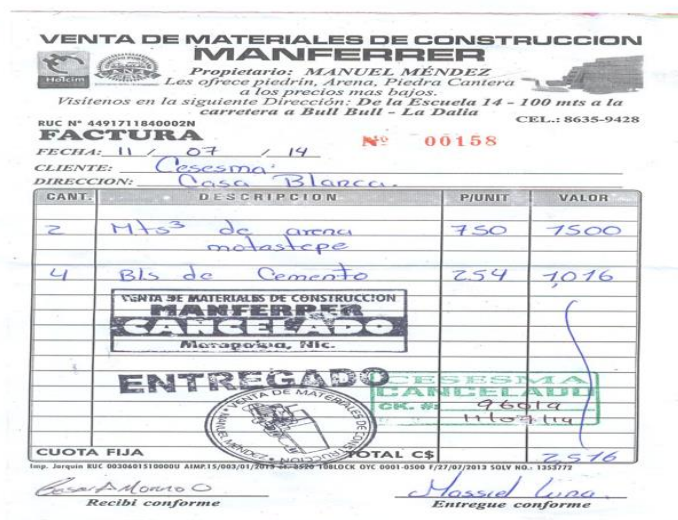 VENTA DE MATERIALES DE CONSTRUCCION
MANFERRER
Holcim
Propietario: MANUEL MÉNDEZ
Les ofrece piedrín, Arena, Piedra Cantera
a los precios mas bajos.
Visitenos en la siguiente Dirección: De la Escuela 14 - 100 mts a la
carretera a Bull Bull - La Dalia
CEL.: 8635-9428
RUC Nº 4491711840002N
FACTURA
Nº 00158
FECHA: 11 / 07 / 14
CLIENTE: Cesesma.
DIRECCION: Casa Blanca.
CANT. DESCRIPCION P/UNIT VALOR
2 Mts³ de arena 750 1500
motastepe
4 Bls de Cemento 254 1,016
VENTA DE MATERIALES DE CONSTRUCCION
MANFERRER
CANCELADO
Matagalpa, Nic.
ENTREGADO
CESESMA
CANCELADO
CK. #:
11/07/14
VENTA DE MATERIALES DE CONSTRUCCION
MANUEL MENDEZ
CUOTA FIJA TOTAL C$ 2,516
Imp. Jerquin RUC 0030601510000U AIMP.15/003/01/2013
Recibi conforme
Massiel Luna.
Entregue conforme